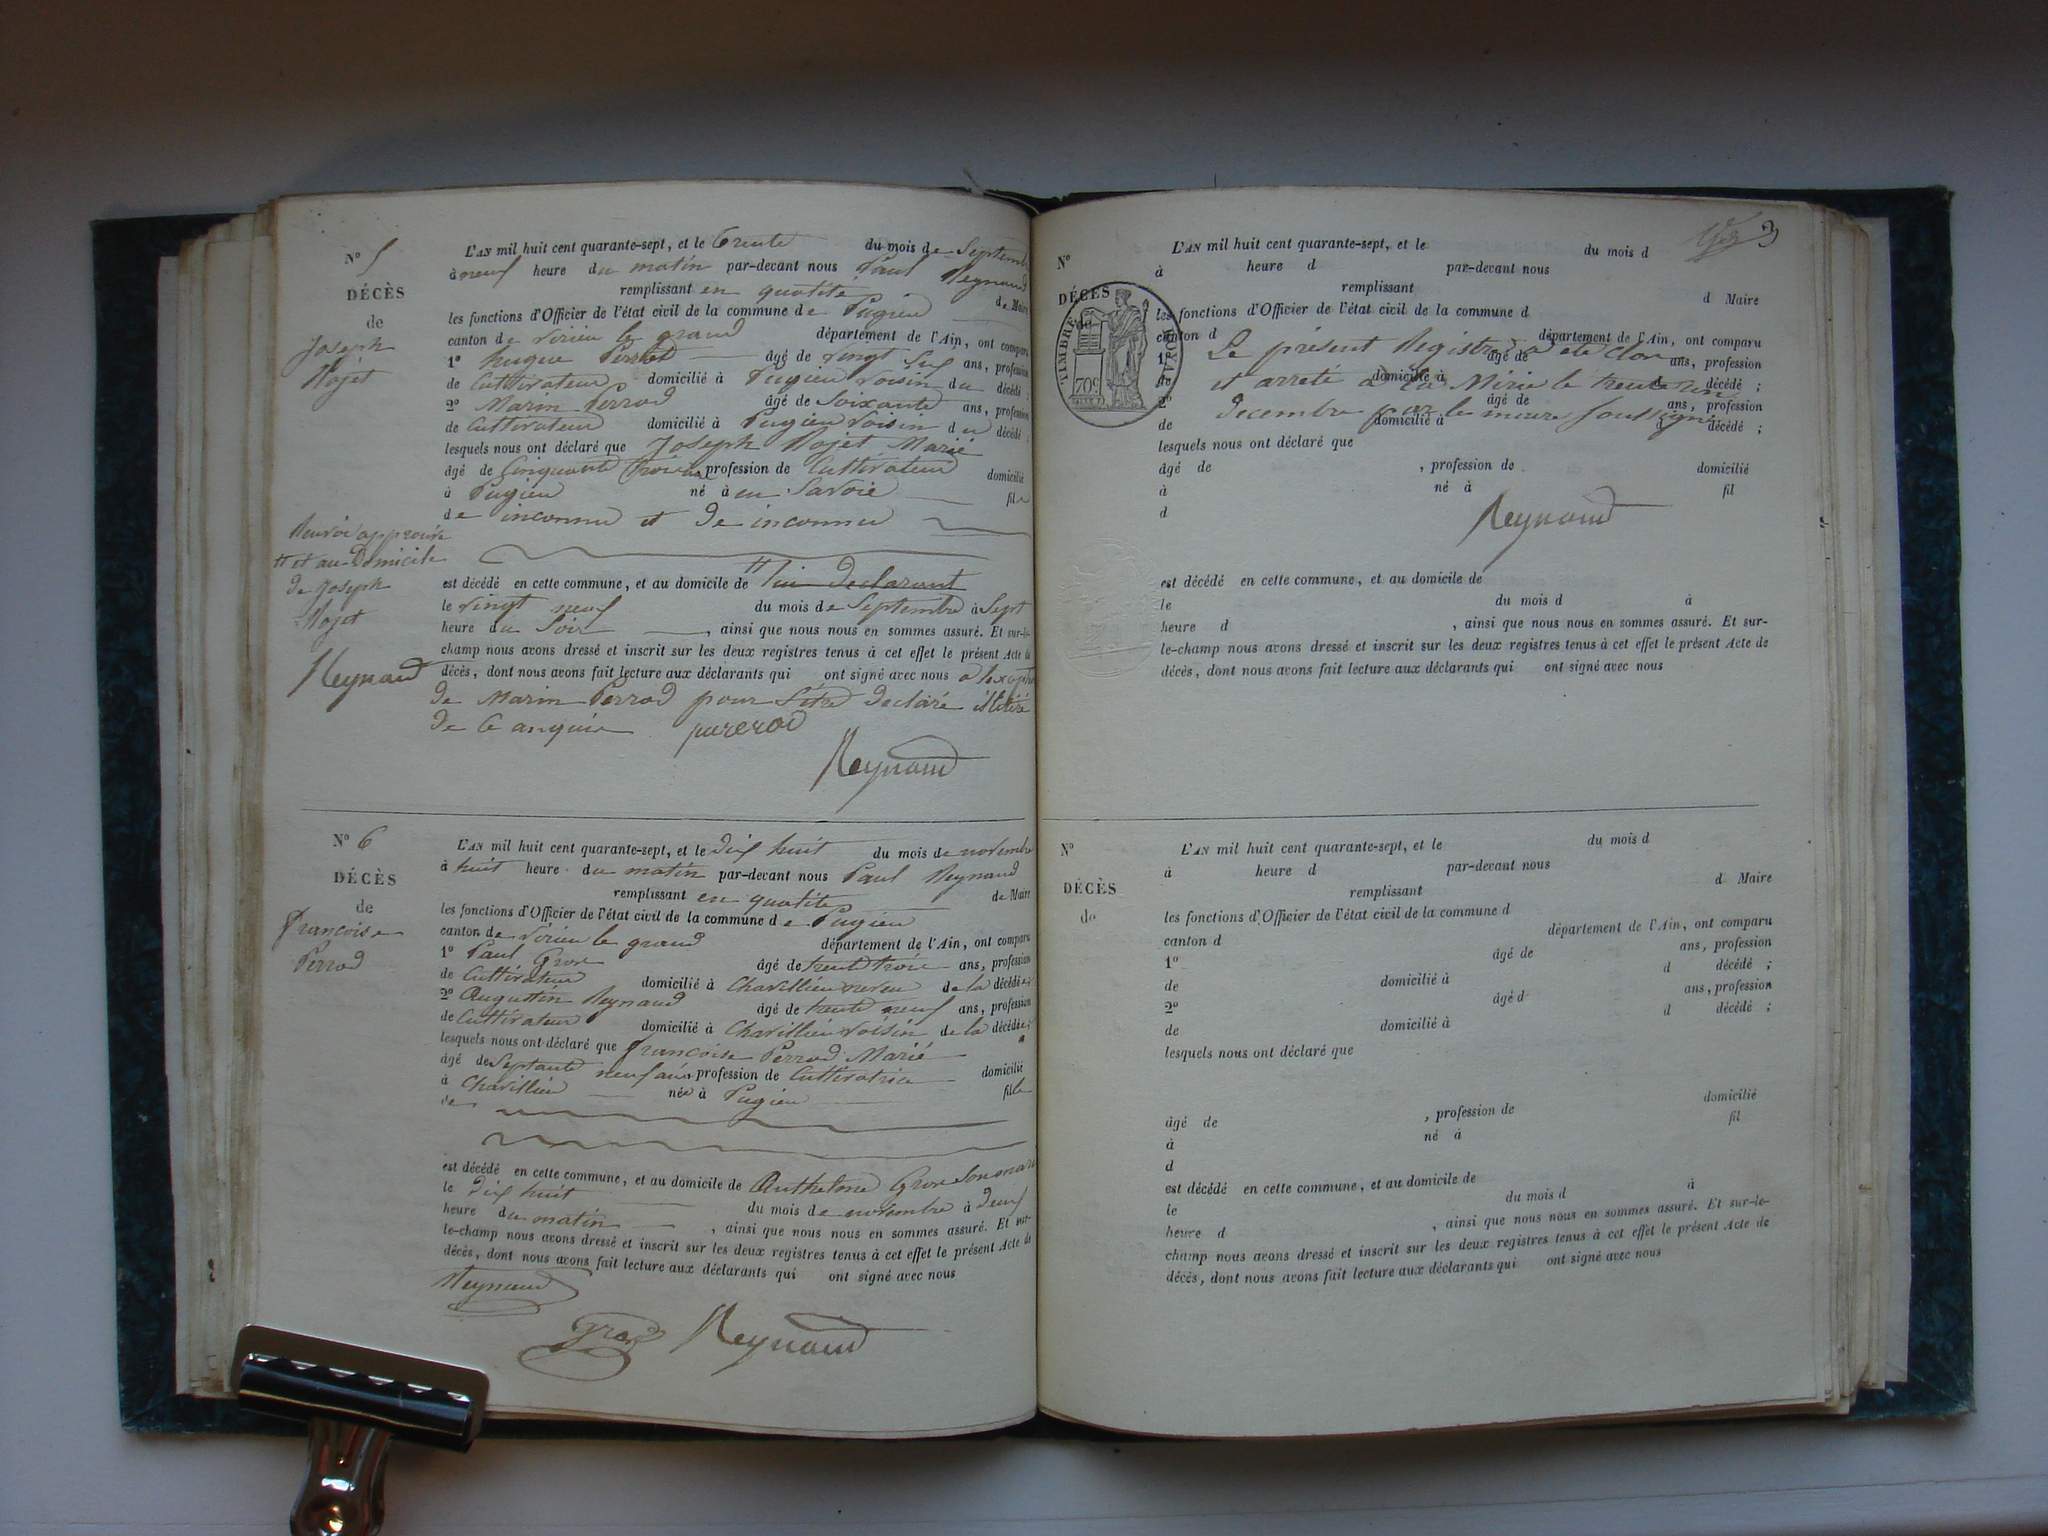 N° 5
DÉCÈS
de
Joseph
Rojet
L'AN mil huit cent quarante-sept, et le trente du mois de Septembre
à neuf heure du matin par-devant nous Paul Reynaud
remplissant en qualité de Maire
les fonctions d'Officier de l'état civil de la commune de Pugieu
canton de Virieu le grand département de l'Ain, ont comparu
1° hugue âgé de vingt ans, profession
de Cultivateur domicilié à Pugieu voisin du décédé ;
2° Marin Perrod âgé de Soixante ans, profession
de Cultivateur domicilié à Pugieu voisin du décédé ;
lesquels nous ont déclaré que Joseph Rojet Marié
âgé de Cinquante trois ans profession de Cultivateur domicilié
à Pugieu né à en Savoie fils
de inconnu et de inconnu
Renvoi approuvé
et au Domicile
de Joseph
Rojet
Reynaud
est décédé en cette commune, et au domicile de lui declarant
le vingt neuf du mois de Septembre à Sept
heure du Soir , ainsi que nous nous en sommes assuré. Et sur-le-
champ nous avons dressé et inscrit sur les deux registres tenus à cet effet le présent Acte de
décès, dont nous avons fait lecture aux déclarants qui ont signé avec nous
de Marin Perrod pour S'être declaré
de ce
Reynaud
N° 6
DÉCÈS
de
francoise
Perrod
L'AN mil huit cent quarante-sept, et le dix huit du mois de novembre
à huit heure du matin par-devant nous Paul Reynaud
remplissant en qualité de Maire
les fonctions d'Officier de l'état civil de la commune de Pugieu
canton de Virieu le grand département de l'Ain, ont comparu
1° Paul Gros âgé de trente trois ans, profession
de Cultivateur domicilié à Chavillieu neveu de la décédée ;
2° Augustin Reynaud âgé de trente neuf ans, profession
de Cultivateur domicilié à Chavillieu voisin de la décédée ;
lesquels nous ont déclaré que francoise Perrod Marié
âgé de Septante neuf ans profession de Cultivatrice domicilié
à Chavillieu née à Pugieu fille
de
est décédé en cette commune, et au domicile de Anthelme Gros Son mari
le dix huit du mois de novembre à deux
heure du matin , ainsi que nous nous en sommes assuré. Et sur-
le-champ nous avons dressé et inscrit sur les deux registres tenus à cet effet le présent Acte de
décès, dont nous avons fait lecture aux déclarants qui ont signé avec nous
Reynaud
gros Reynaud
3
N°
DÉCÈS
de
TIMBRE ROYAL
70c
L'AN mil huit cent quarante-sept, et le du mois d
à heure d par-devant nous
remplissant d Maire
les fonctions d'Officier de l'état civil de la commune d
canton d département de l'Ain, ont comparu
Le présent Registre a été clos
1° âgé de ans, profession
et arreté à la Mérie le trente un
de domicilié à d décédé ;
decembre par le maire Soussigné
2° âgé de ans, profession
de domicilié à décédé ;
lesquels nous ont déclaré que
âgé de , profession de domicilié
à né à fil
d
Reynaud
est décédé en cette commune, et au domicile de
le du mois d à
heure d , ainsi que nous nous en sommes assuré. Et sur-
le-champ nous avons dressé et inscrit sur les deux registres tenus à cet effet le présent Acte de
décès, dont nous avons fait lecture aux déclarants qui ont signé avec nous
N°
DÉCÈS
de
L'AN mil huit cent quarante-sept, et le du mois d
à heure d par-devant nous
remplissant d Maire
les fonctions d'Officier de l'état civil de la commune d
canton d département de l'Ain, ont comparu
1° âgé de ans, profession
de domicilié à d décédé ;
2° âgé d ans, profession
de domicilié à d décédé ;
lesquels nous ont déclaré que
âgé de , profession de domicilié
à né à fil
d
est décédé en cette commune, et au domicile de
le du mois d à
heure d , ainsi que nous nous en sommes assuré. Et sur-le-
champ nous avons dressé et inscrit sur les deux registres tenus à cet effet le présent Acte de
décès, dont nous avons fait lecture aux déclarants qui ont signé avec nous